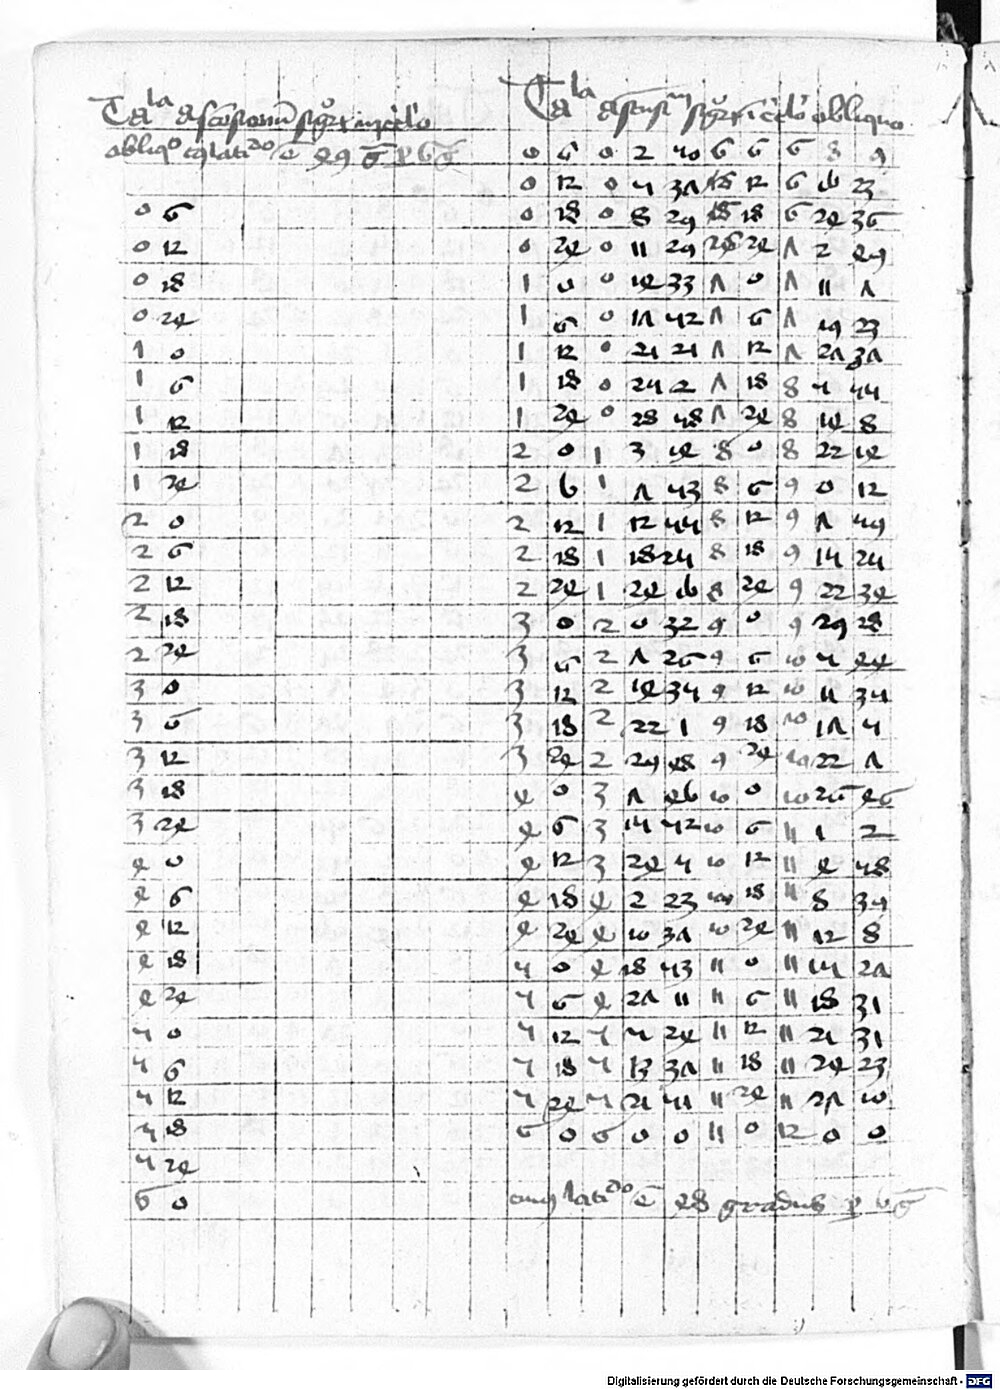 Tala ascensionum signorum in circulo
obliquo cuius latitudo est 49 g
0 6
0 12
0 18
0 24
1 0
1 6
1 12
1 18
1 24
2 0
2 6
2 12
2 18
2 24
3 0
3 6
3 12
3 18
3 24
4 0
4 6
4 12
4 18
4 24
5 0
5 6
5 12
5 18
5 24
6 0
Tala ascensionum signorum in circulo obliquo
0 6 0 2 50 6 6 6 8 9
0 12 0 5 37 6 12 6 16 23
0 18 0 8 29 6 18 6 24 36
0 24 0 11 29 6 24 7 2 49
1 0 0 14 33 7 0 7 11 7
1 6 0 17 52 7 6 7 19 23
1 12 0 21 21 7 12 7 27 37
1 18 0 25 2 7 18 8 5 55
1 24 0 28 58 7 24 8 14 8
2 0 1 3 14 8 0 8 22 14
2 6 1 7 53 8 6 9 0 12
2 12 1 12 55 8 12 9 7 59
2 18 1 18 25 8 18 9 15 25
2 24 1 24 16 8 24 9 22 34
3 0 2 0 32 9 0 9 29 28
3 6 2 7 26 9 6 10 5 44
3 12 2 14 35 9 12 10 11 35
3 18 2 22 1 9 18 10 17 5
3 24 2 29 48 9 24 10 22 7
4 0 3 7 46 10 0 10 26 46
4 6 3 15 52 10 6 11 1 2
4 12 3 24 5 10 12 11 4 58
4 18 4 2 23 10 18 11 8 39
4 24 4 10 37 10 24 11 12 8
5 0 4 18 53 11 0 11 15 27
5 6 4 27 11 11 6 11 18 31
5 12 5 5 24 11 12 11 21 31
5 18 5 13 37 11 18 11 24 23
5 24 5 21 51 11 24 11 27 10
6 0 6 0 0 11 0 12 0 0
cuius latitudo est 48 gradus
Digitalisierung gefördert durch die Deutsche Forschungsgemeinschaft - DFG